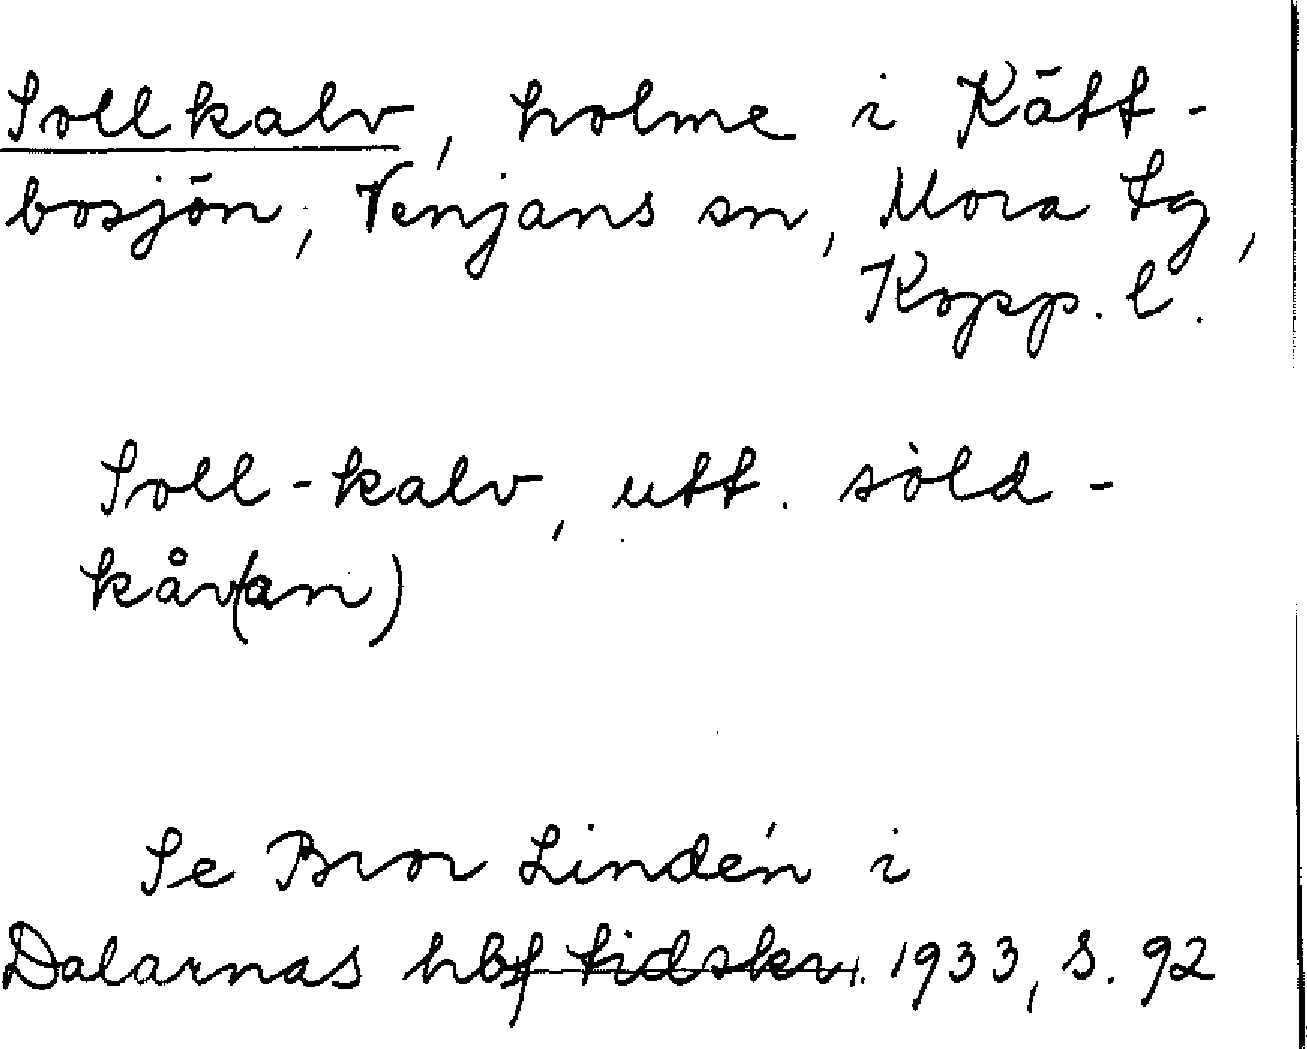 Sollkalv, holme i Kätt-
bosjön, Venjans sn, Mora tg,
Kopp. l.
Soll-kalv, utt. söld-
kåv(an)
Se Bror Lindén i
Dalarnas hbf tidskr. 1933, s. 92